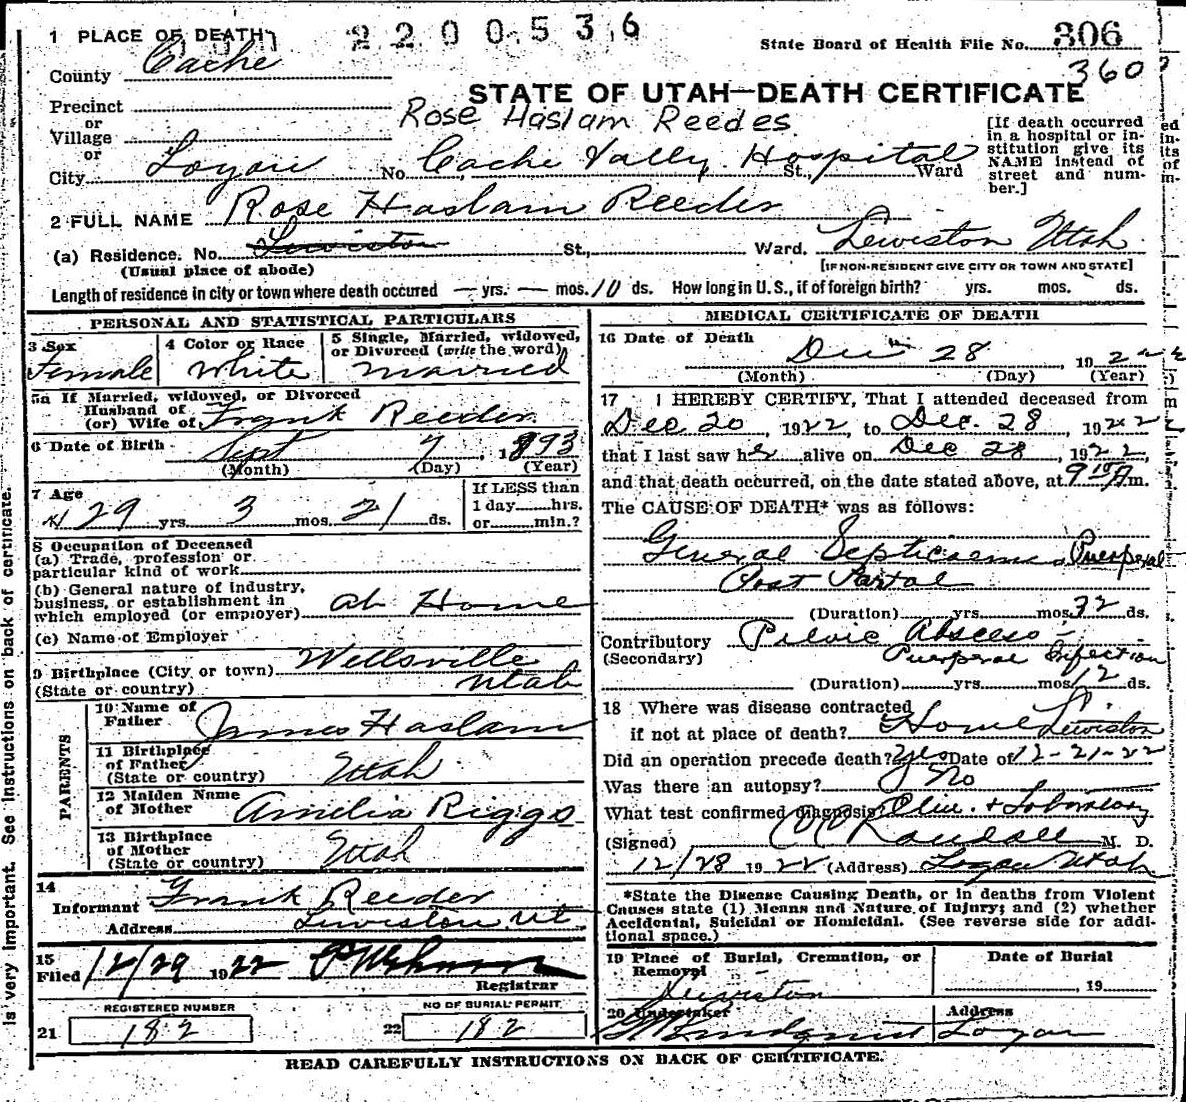 1 PLACE OF DEATH
2200536
State Board of Health File No. 306
360
County Cache
STATE OF UTAH—DEATH CERTIFICATE
Precinct
or
Village
or
Rose Haslam Reedes
[If death occurred
in a hospital or in-
stitution give its
NAME instead of
street and num-
ber.]
City Logan No Cache Vally Hospital St., Ward
2 FULL NAME Rose Haslam Reeder
(a) Residence. No. Lewiston St., Ward. Lewiston Utah
(Usual place of abode)
[IF NON-RESIDENT GIVE CITY OR TOWN AND STATE]
Length of residence in city or town where death occured — yrs. — mos. 10 ds. How long in U.S., if of foreign birth? yrs. mos. ds.
PERSONAL AND STATISTICAL PARTICULARS
3 Sex
Female
4 Color or Race
White
5 Single, Married, widowed,
or Divorced (write the word)
married
5a If Married, widowed, or Divorced
Husband of
(or) Wife of Frank Reeder
6 Date of Birth Sept 7, 1893
(Month) (Day) (Year)
7 Age
29 yrs 3 mos. 21 ds.
If LESS than
1 day hrs.
or min.?
8 Occupation of Deceased
(a) Trade, profession or
particular kind of work
(b) General nature of industry,
business, or establishment in
which employed (or employer) at Home
(c) Name of Employer
9 Birthplace (City or town) Wellsville
(State or country) Utah
PARENTS
10 Name of
Father James Haslam
11 Birthplace
of Father
(State or country) Utah
12 Maiden Name
of Mother Amelia Riggs
13 Birthplace
of Mother
(State or country) Utah
14
Informant Frank Reeder
Address Lewiston Ut
15
Filed 12/29 1922
Registrar
REGISTERED NUMBER
21 182
NO OF BURIAL PERMIT
22 182
MEDICAL CERTIFICATE OF DEATH
16 Date of Death
Dec 28 1922
(Month) (Day) (Year)
17 I HEREBY CERTIFY, That I attended deceased from
Dec 20, 1922, to Dec. 28, 1922
that I last saw her alive on Dec 28, 1922,
and that death occurred, on the date stated above, at 9 10 A m.
The CAUSE OF DEATH* was as follows:
General Septicaemia Puerperal
Post Partal
(Duration) yrs mos. 32 ds.
Contributory Pelvic Abscess -
(Secondary) Puerperal Infection
(Duration) yrs mos. 12 ds.
18 Where was disease contracted
if not at place of death? Home Lewiston
Did an operation precede death? Yes Date of 12-21-22
Was there an autopsy? No
What test confirmed diagnosis? Clin. + Laboratory
(Signed) Randall M. D.
12/28 1922 (Address) Logan Utah
*State the Disease Causing Death, or in deaths from Violent
Causes state (1) Means and Nature of Injury; and (2) whether
Accidental, Suicidal or Homicidal. (See reverse side for addi-
tional space.)
19 Place of Burial, Cremation, or
Removal
Lewiston
Date of Burial
19
20 Undertaker
Lindquist
Address
Logan
READ CAREFULLY INSTRUCTIONS ON BACK OF CERTIFICATE.
is very important. See Instructions on back of certificate.